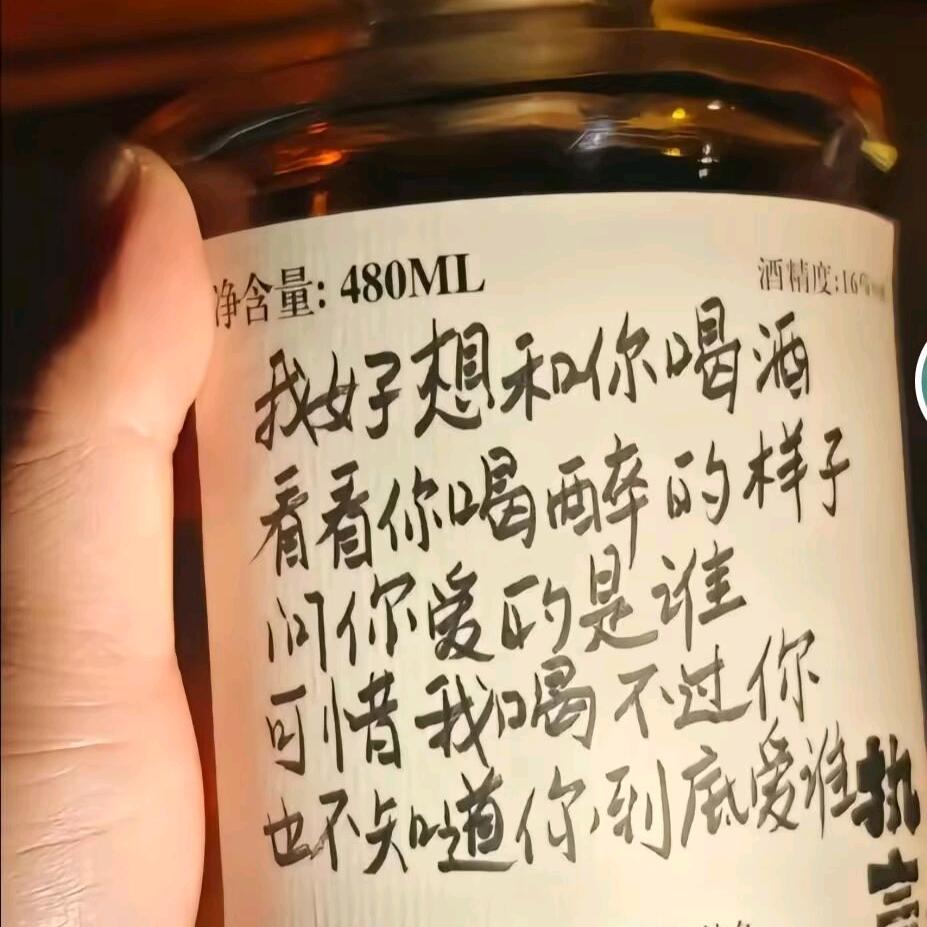 净含量: 480ML
酒精度:16%
我好想和你喝酒
看看你喝醉的样子
问你爱的是谁
可惜我喝不过你
也不知道你到底爱谁
执
言